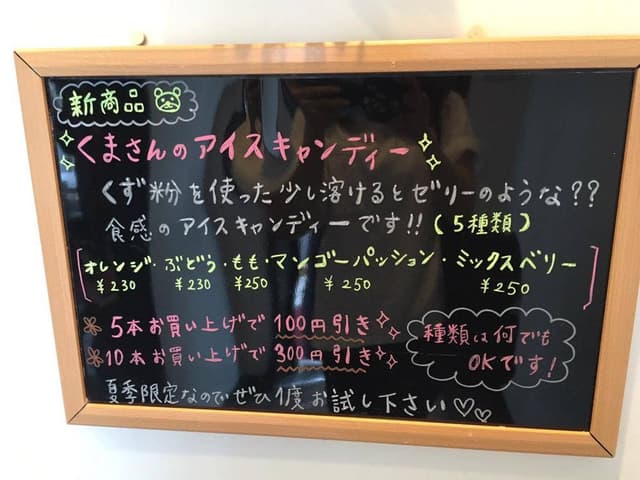 新商品
くまさんのアイスキャンディー
くず粉を使った少し溶けるとゼリーのような??
食感のアイスキャンディーです!!(5種類)
オレンジ・ぶどう・もも・マンゴーパッション・ミックスベリー
¥230 ¥230 ¥250 ¥250 ¥250
5本お買い上げで100円引き
10本お買い上げで300円引き
種類は何でも
OKです!
夏季限定なのでぜひ1度お試し下さい♡♡